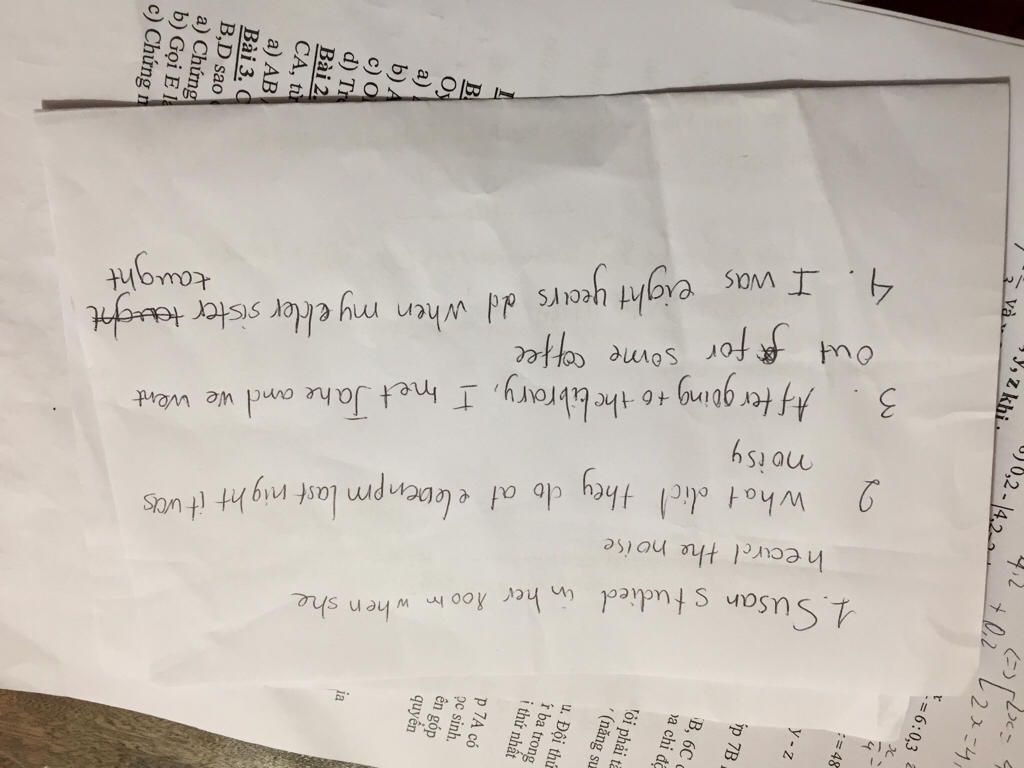 1. Susan studied in her room when she
heard the noise
2 What did they do at eleven pm last night it was
noisy
3. After going to the library, I met Jane and we went
out for some coffee
4. I was eight years old when my elder sister taught
taught
I
B
Oy
a)
b) A
c) O
d) Tr
Bài 2.
CA, th
a) AB
Bài 3. C
B,D sao
a) Chứng
b) Gọi E là
c) Chứng m
p 7A có
ọc sinh,
ên góp
quyển
u. Đội thứ
i ba trong
i thứ nhất
ôi phải tr
(năng su
ip 7B
B, 6C
a chỉ độ
y - z
= 48
= 6:0,3
y, z khi.
4,2 + 0,2